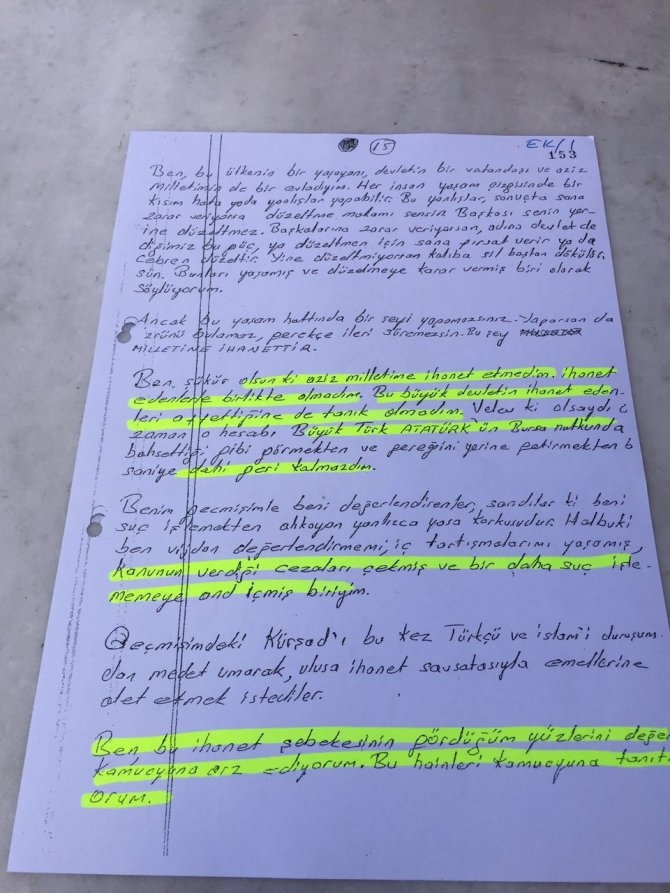 15
EK/1
153
Ben, bu ülkenin bir yaşayanı, devletin bir vatandaşı ve aziz
milletimin de bir evladıyım. Her insan yaşam çizgisinde bir
kısım hata yada yanlışlar yapabilir. Bu yanlışlar, sonuçta sana
zarar veriyorsa düzeltme makamı sensin Başkası senin yer-
ine düzeltmez. Başkalarına zarar veriyorsan, adına devlet de
diğimiz bu güç, ya düzeltmen için sana fırsat verir ya da
cebren düzeltir. Yine düzeltmiyorsan kalıba sil baştan dökülsü
sün. Bunları yaşamış ve düzelmeye karar vermiş biri olarak
söylüyorum.
Ancak bu yaşam hattında bir şeyi yapamazsınız. Yaparsan da
özrünü bulamaz, gerekçe ileri süremezsin. Bu şey
MİLLETİNE İHANETTİR.
Ben, şükür olsun ki aziz milletime ihanet etmedim. ihanet
edenlerle birlikte olmadım. Bu büyük devletin ihanet eden-
leri affettiğine de tanık olmadım. Velev ki olsaydı o
zaman o hesabı Büyük Türk ATATÜRK'ün Bursa nutkunda
bahsettiği gibi görmekten ve gereğini yerine getirmekten b
saniye dahi geri kalmazdım.
Benim geçmişimle beni değerlendirenler, sandılar ki beni
suç işlemekten alıkoyan yanlızca yasa korkusudur. Halbuki
ben vijdan değerlendirmemi, iç tartışmalarımı yaşamış,
kanunun verdiği cezaları çekmiş ve bir daha suç işle-
memeye and içmiş biriyim.
Geçmişimdeki Kürşad'ı bu kez Türkçü ve islami duruşum-
dan medet umarak, ulusa ihanet savsatasıyla emellerine
alet etmek istediler.
Ben bu ihanet şebekesinin gördüğüm yüzlerini değer
kamuoyuna arz ediyorum. Bu hainleri kamuoyuna tanıtı
orum.